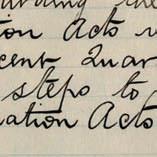 tion Acts
cent Quar
steps to
ation Acts